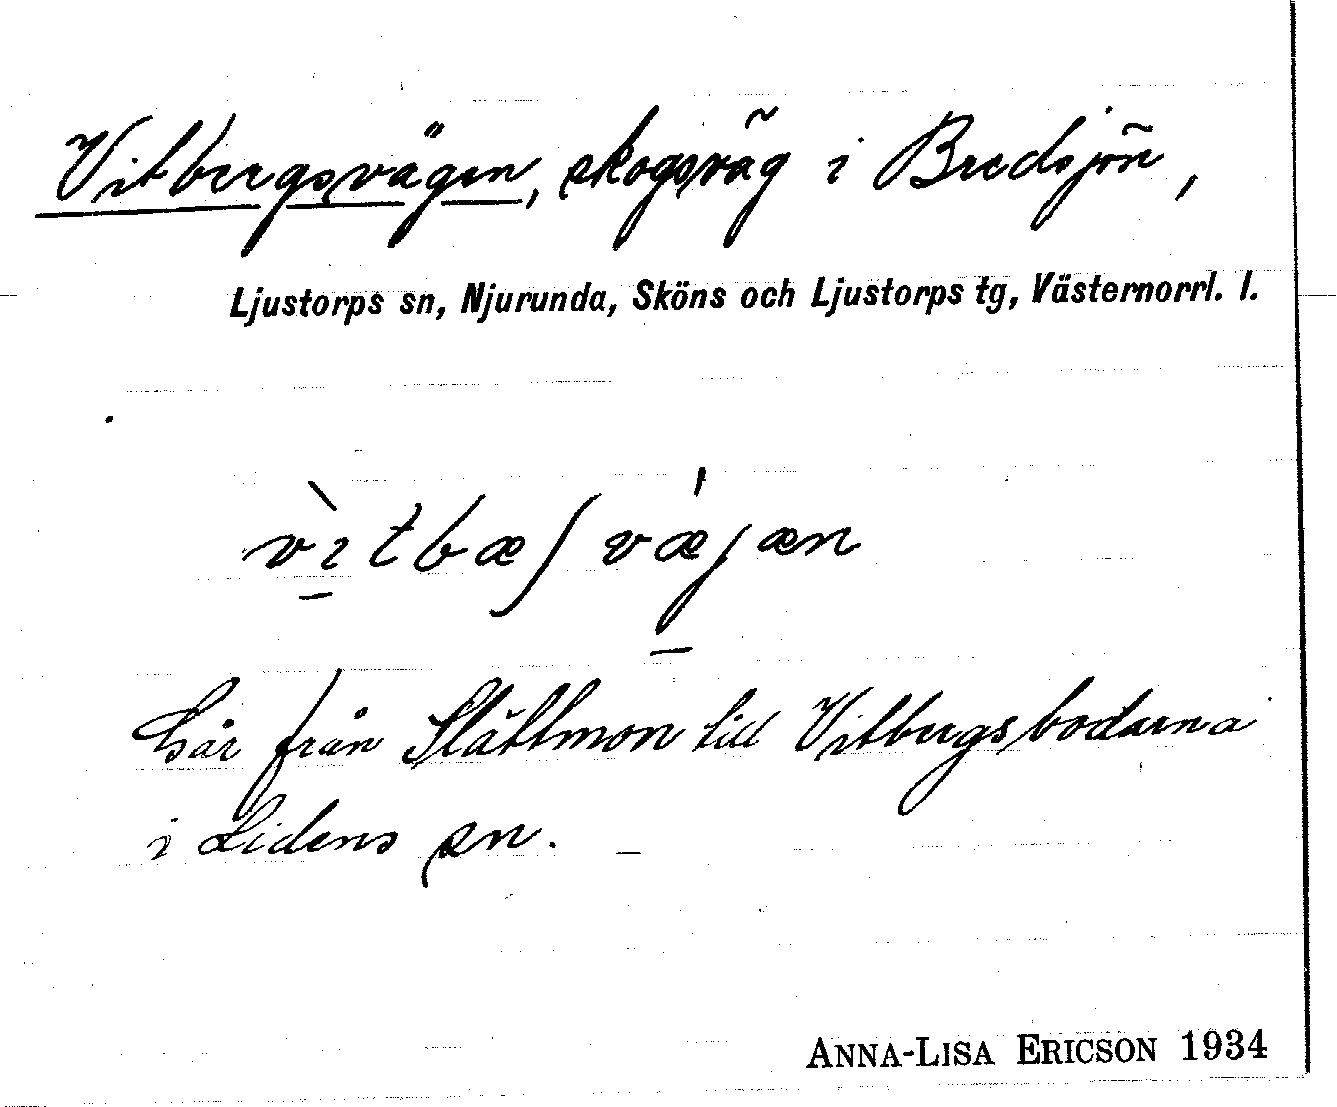 Vitbergsvägen, skogsväg i Bredsjön,
Ljustorps sn, Njurunda, Sköns och Ljustorps tg, Västernorrl. l.
vìtbæʃvæ'jæn
Går från Slättmon till Vitbergsbodarna
i Lidens sn. –
ANNA-LISA ERICSON 1934